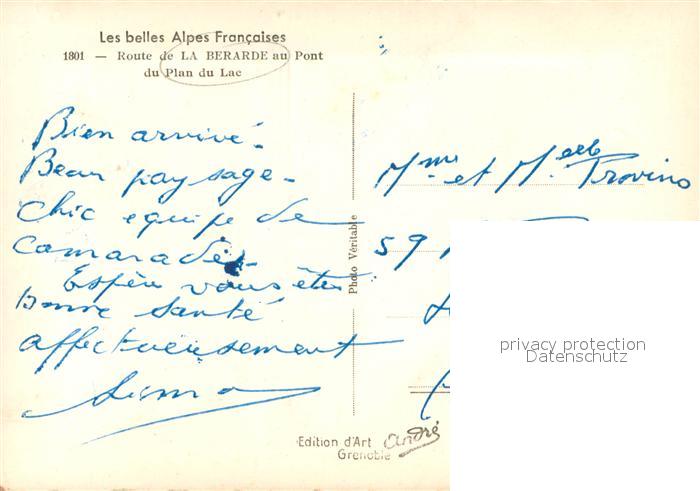 Les belles Alpes Françaises
1801 — Route de LA BERARDE au Pont
du Plan du Lac
Bien arrivé.
Beau paysage.
Chic equipe de
camarades.
Espère vous êtes
bonne santé
affectueusement
Photo Véritable
Mme et Melle Provins
59
privacy protection
Datenschutz
Edition d'Art André
Grenoble